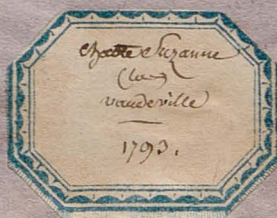 chaste Suzanne
(la)
vaudeville
1793.